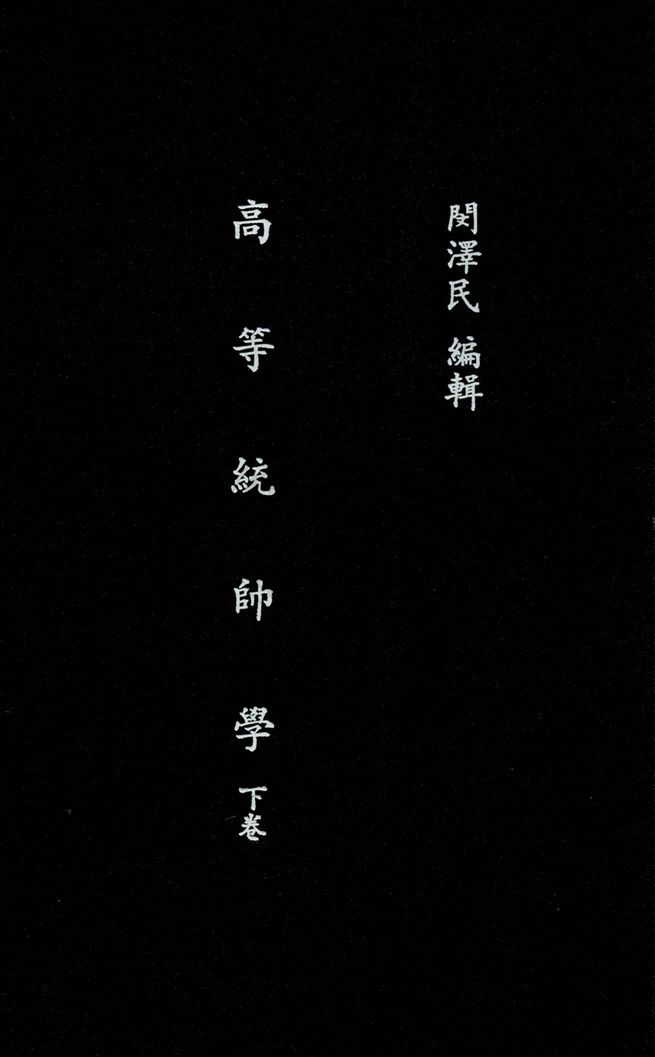 閔澤民 編輯
高等統帥學 下卷